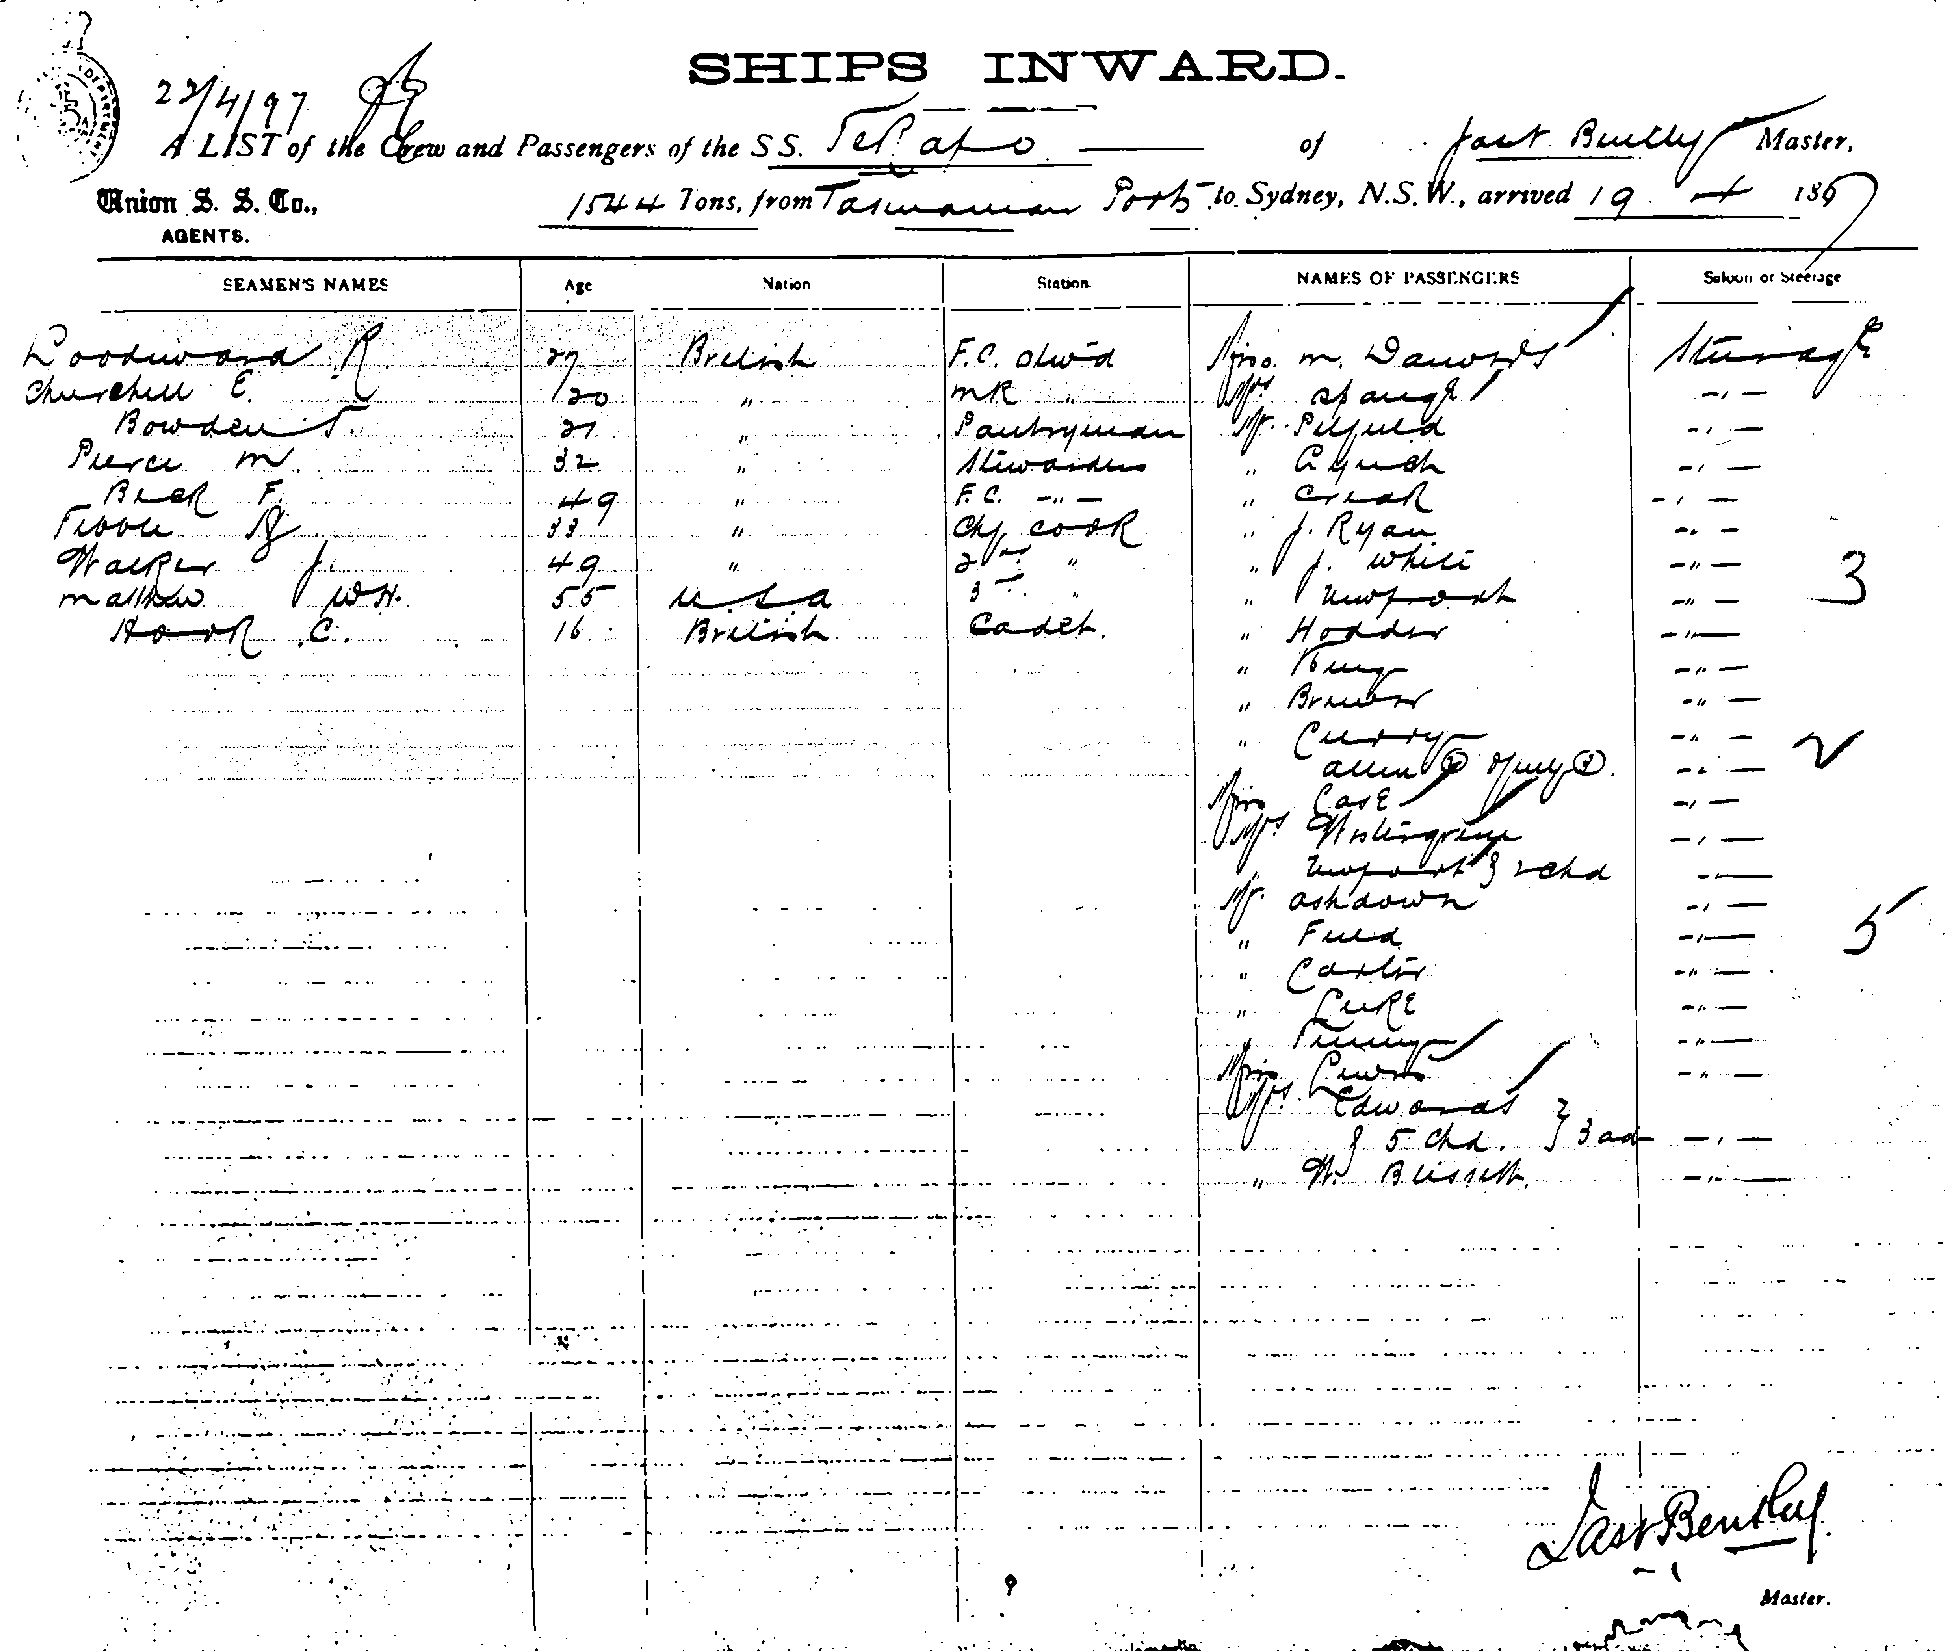 SHIPS INWARD.
22/4/97
A LIST of the Crew and Passengers of the S S. TeKapo of Jas Bentley Master,
Union S. S. Co., 1544 Tons, from Tasmanian Ports to Sydney, N.S.W., arrived 19 4 1897
AGENTS.
SEAMEN'S NAMES Age Nation Station NAMES OF PASSENGERS Saloon or Steerage
Woodward R 27 British F.C. Stw'd Miss M. Steerage
Churchill E. 20 " MR " Mrs -"-
Bowden T. 21 " Pantryman Mr -"-
Pierce M. 32 " Stewardess " -"-
Beck F. 49 " F.C. -"- " Creak -"-
33 " Chf Cook " J. Ryan -"-
Walker J. 49 " 2nd " " J. White -"- 3
Matthew W.H. 55 U.S.A 3rd " " Newport -"-
Hook C. 16 British Cadet. " Hodder -"-
" King -"-
" Brewer -"-
" Curry -"-
Allen -"- 2
Miss Case -"-
Mrs -"-
" Newport & 2 Chd -"-
Mr Ashdown -"-
" Field -"- 5
" Carter -"-
" Luke -"-
" -"-
Miss Lewis -"-
Mrs Edwards
& 5 Chd. } 3 ad -"-
" W. Blissett. -"-
Jas Bentley
Master.